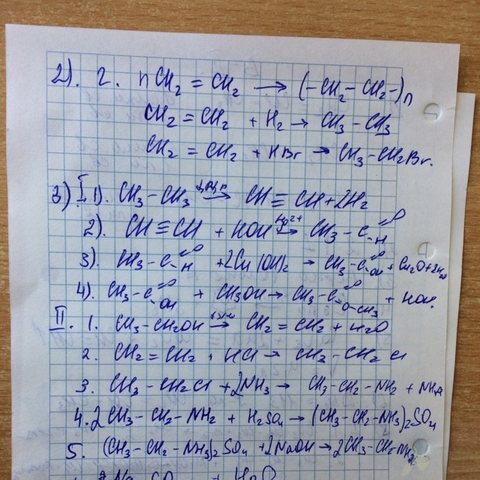 2). г. nCH₂ = CH₂ → (-CH₂ - CH₂-)n
CH₂ = CH₂ + H₂ → CH₃ - CH₃
CH₂ = CH₂ + HBr → CH₃ - CH₂Br.
3) I 1). CH₃ - CH₃ → CH ≡ CH + 2H₂
2). CH ≡ CH + HOH Hg²⁺→ CH₃ - C =O -H
3). CH₃ - C =O -H + 2Cu(OH)₂ → CH₃ - C =O -OH + Cu₂O + 2H₂O
4). CH₃ - C =O -OH + CH₃OH → CH₃ - C =O -O - CH₃ + HOH.
II. 1. CH₃ - CH₂OH → CH₂ = CH₂ + H₂O
2. CH₂ = CH₂ + HCl → CH₃ - CH₂Cl
3. CH₃ - CH₂Cl + 2NH₃ → CH₃ - CH₂ - NH₂ +
4. 2CH₃ - CH₂ - NH₂ + H₂SO₄ → (CH₃ - CH₂ - NH₃)₂SO₄
5. (CH₃ - CH₂ - NH₃)₂SO₄ + 2NaOH → 2CH₃ - CH₂ - NH₂
+ H₂O